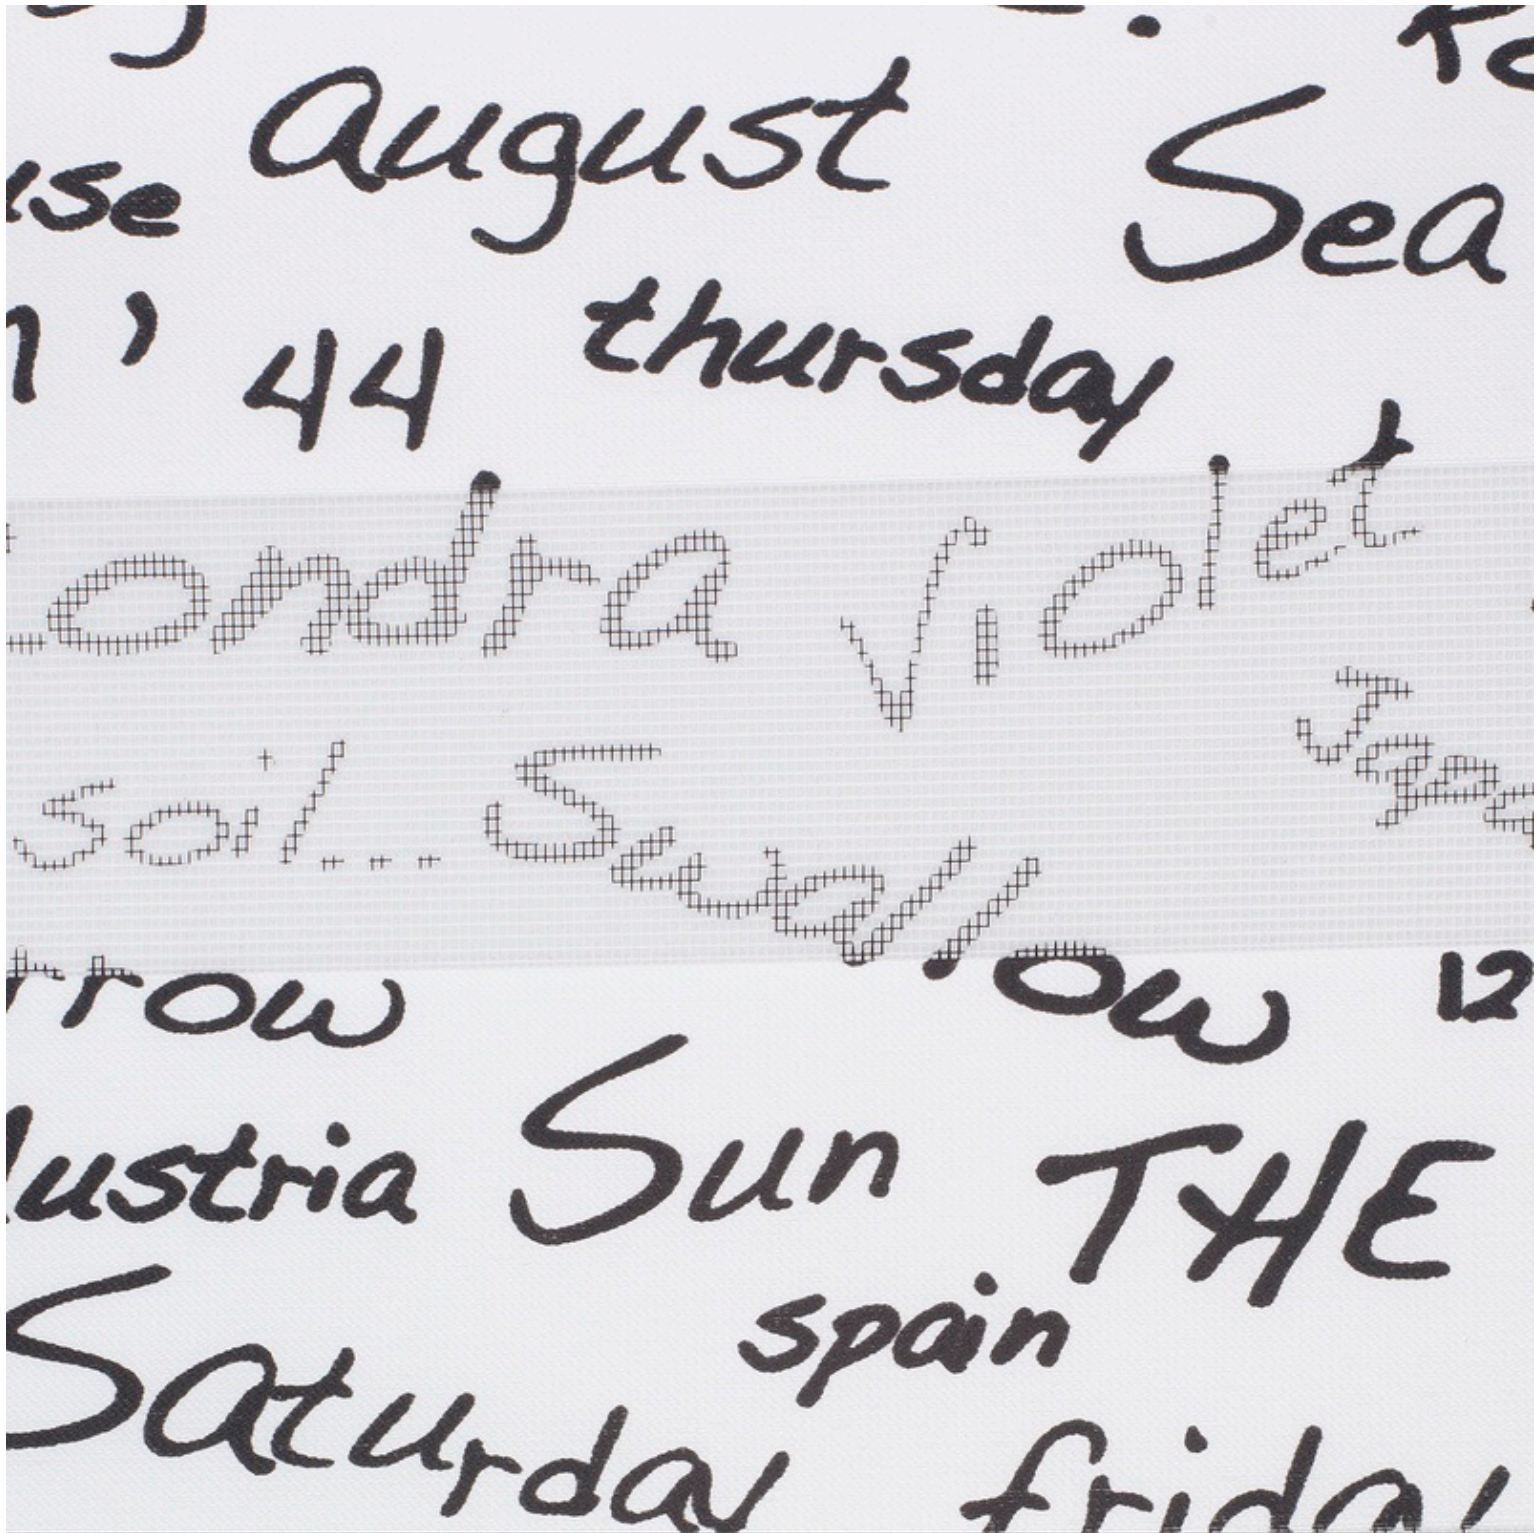 august
Sea
use
' 44 thursday
Londra Violet
soil... Swallow
Japa
rrow
12
ustria Sun THE
spain
Saturday
friday